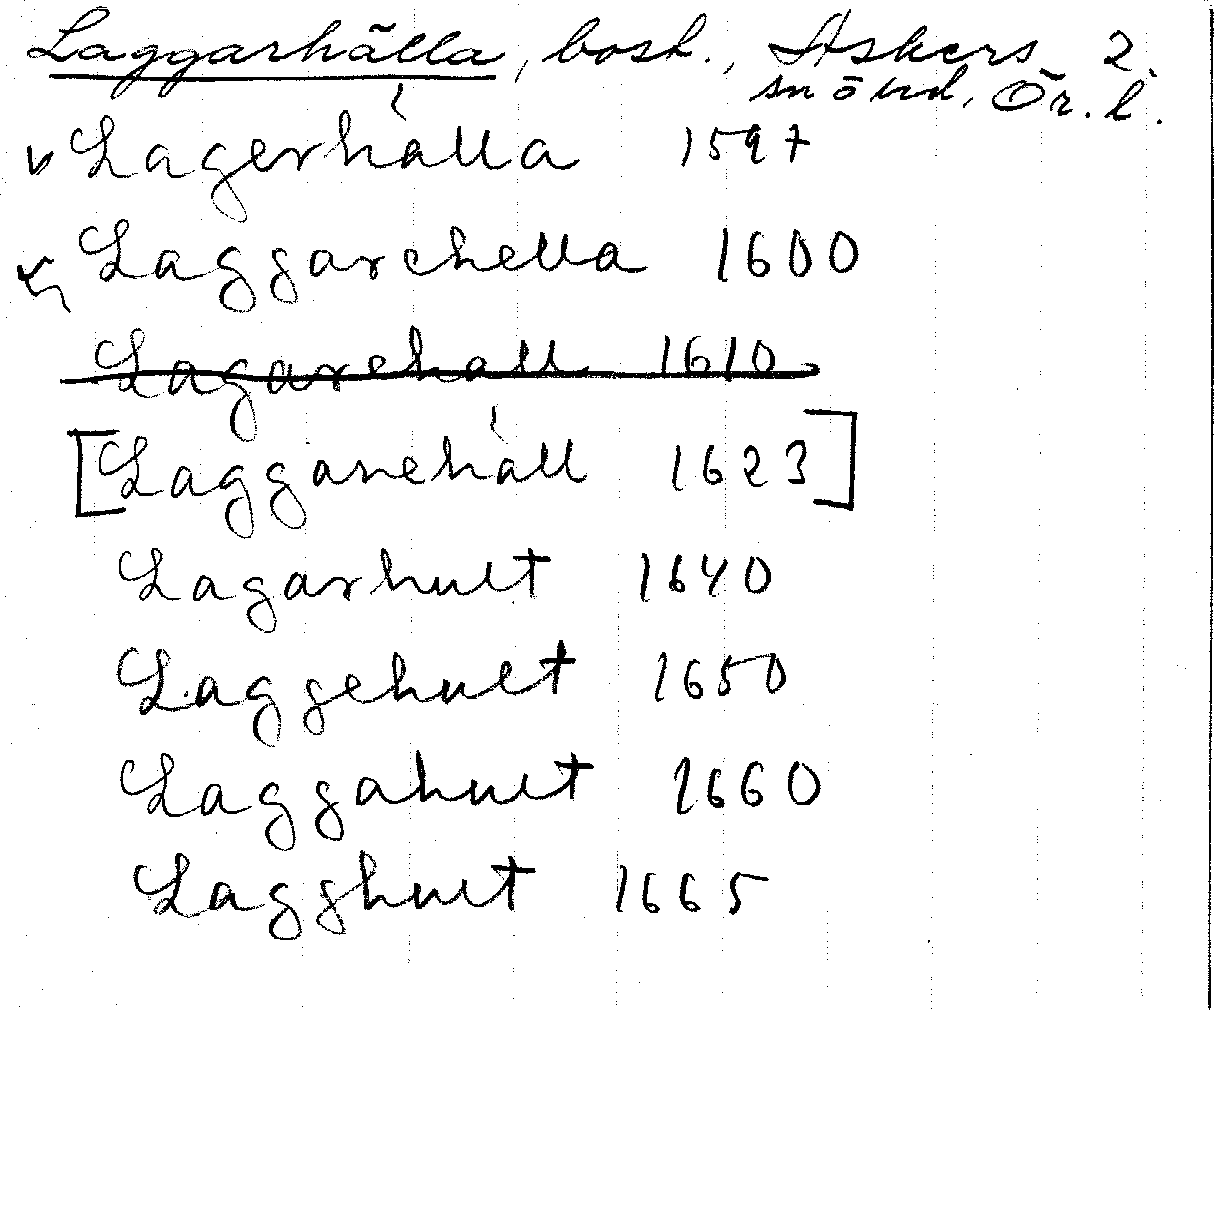 Laggarhälla, bost., Askers 2.
sn ö hd, Ör. l.
v Lagerhàlla 1597
v Laggarehella 1600
Lagarehall 1610
[Laggarehàll 1623]
Lagarhult 1640
Laggehult 1650
Laggahult 1660
Lagghult 1665